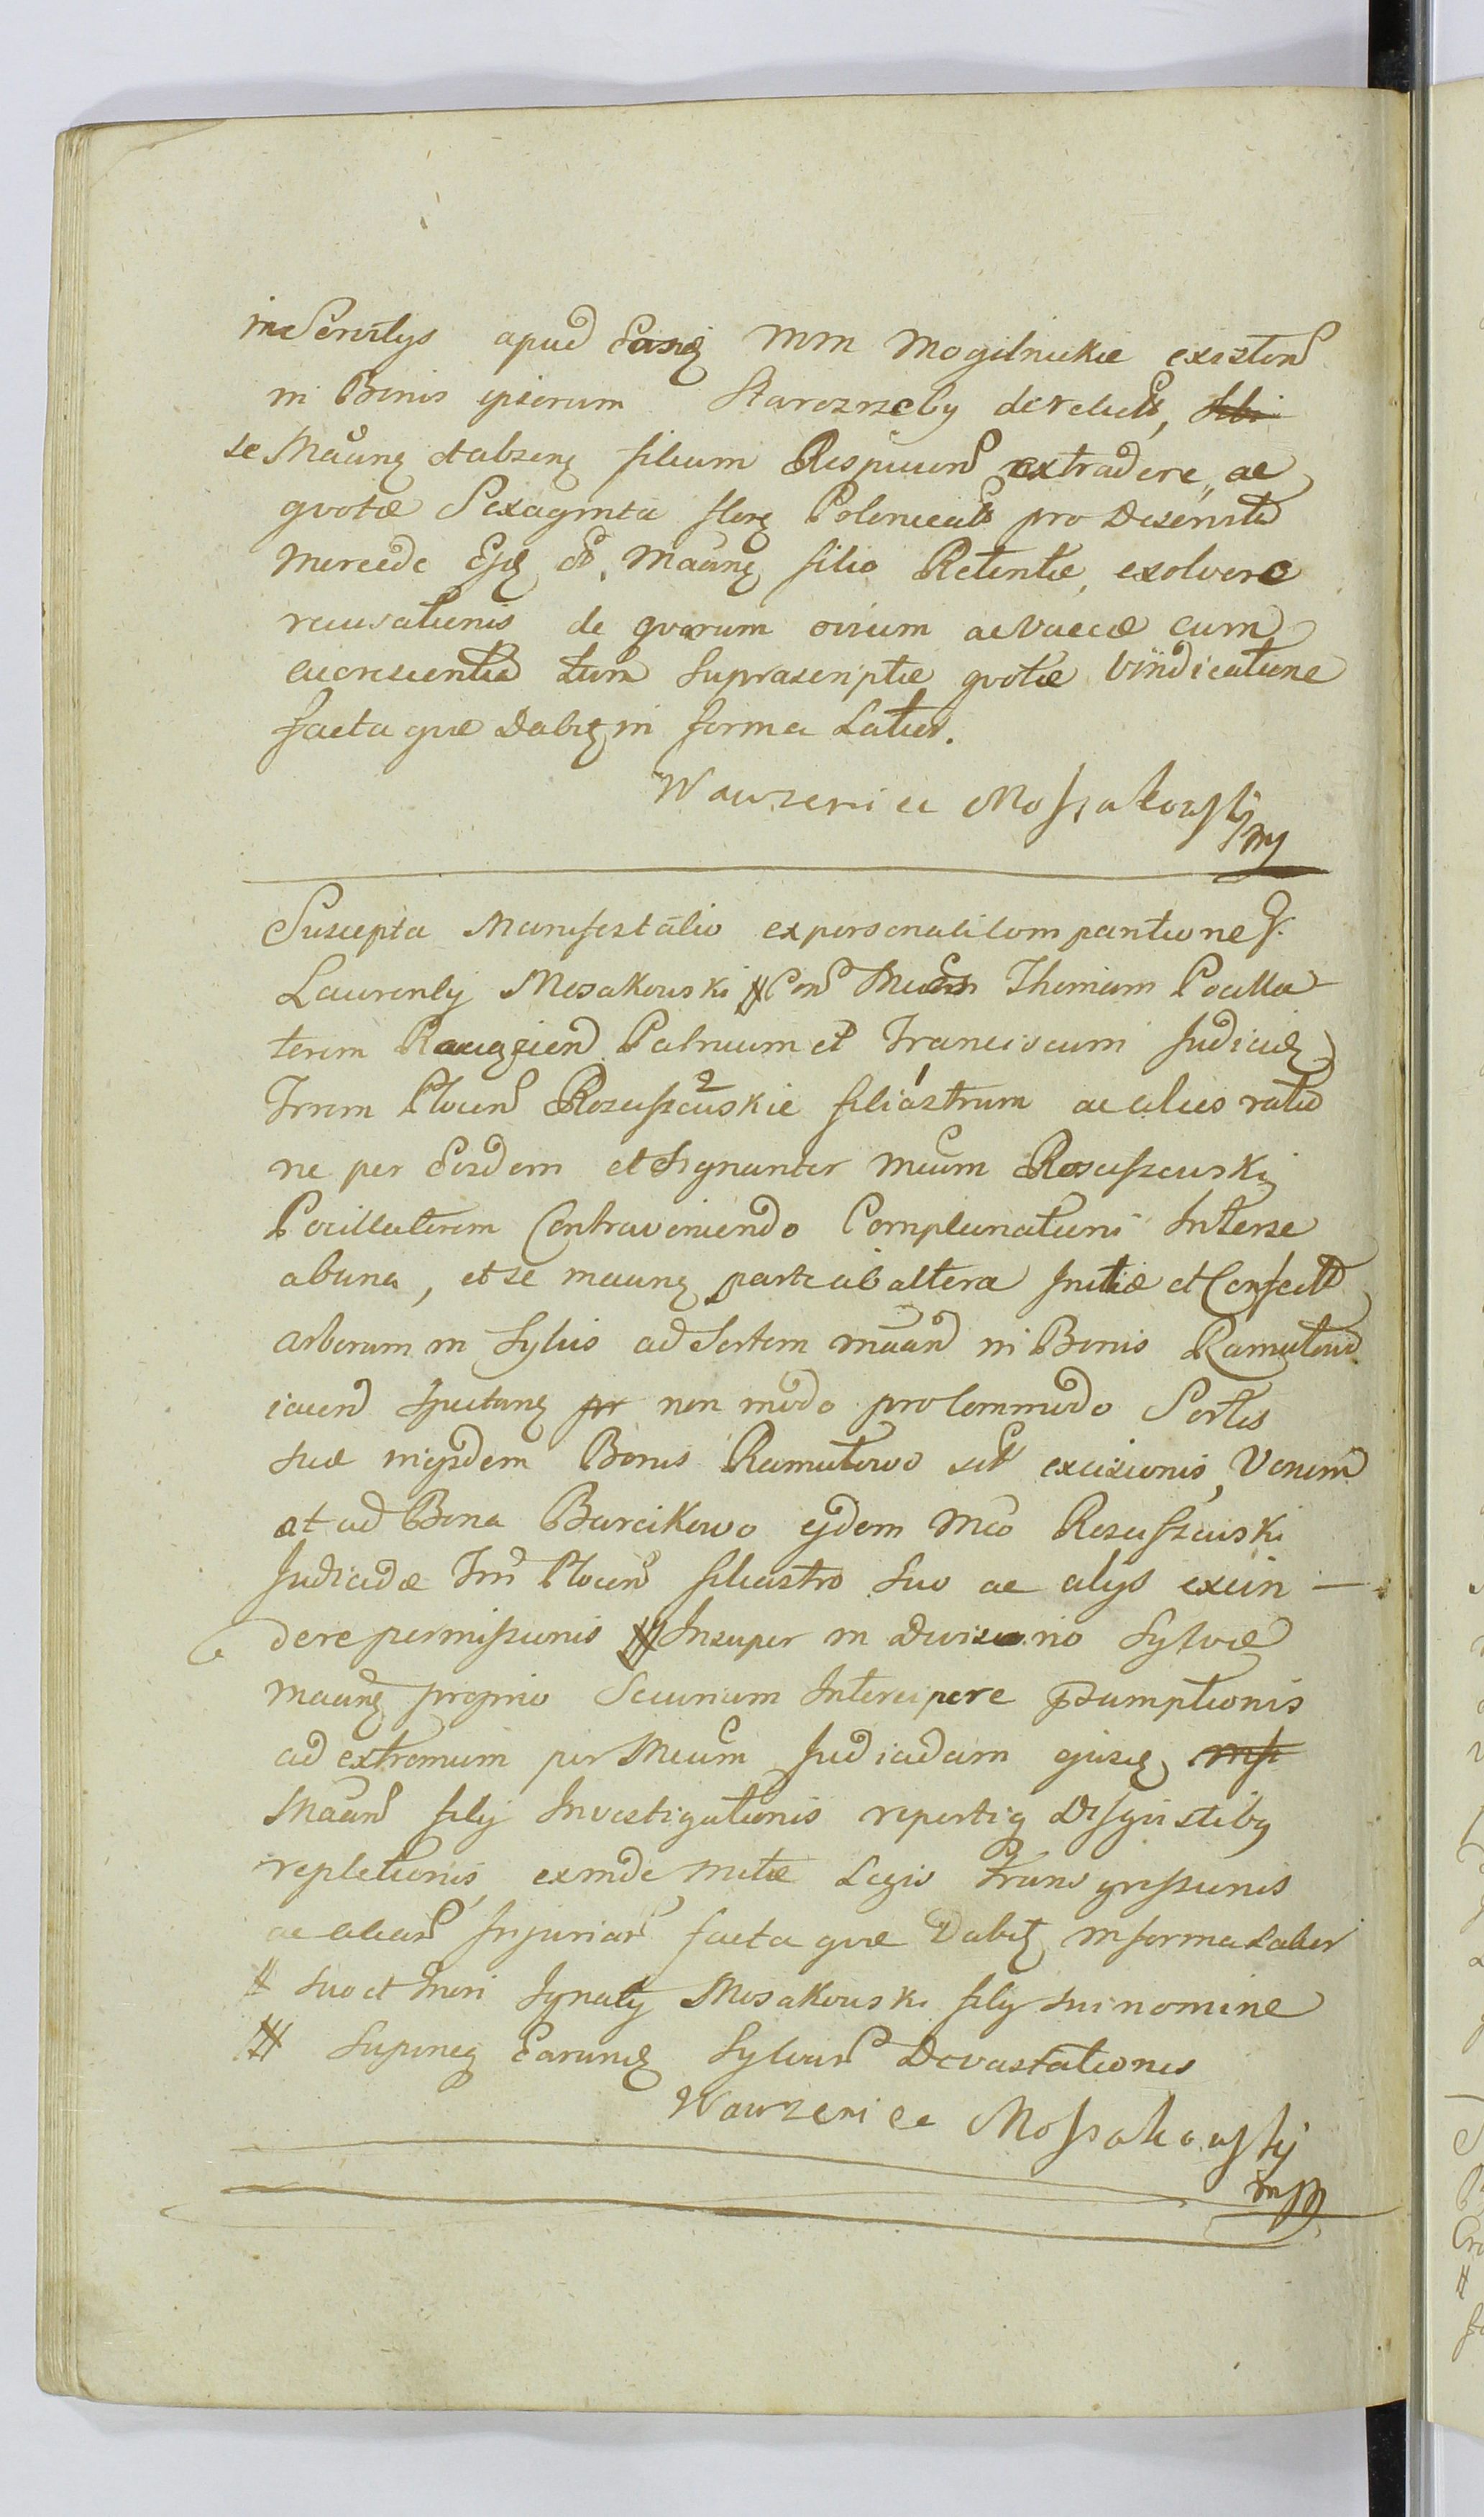 in Servitys apud Easq MM Mogilnickie existen
in Bonis ipsorum Starozreby derelict, sibi
se Maãnq et absenq filium Respicien extradere, ac
quotæ Sexaginta florq Polonicat pro Deservita
mercede Ejq et Maãnq filio Retentæ, exolvere
recusationis de quarum ovium ac vaccæ cum
accrescentia tum Suprascriptæ quotæ Vindicatione
facta quæ Dabiq in forma Latius.
Wawrzeniec Mossakowski
mp
Suscepta Manifestatio ex personali Comparitione G.
Laurenty Mosakowski # Con Thomam Pocilla
torem Raciązien Patruum et Franciscum Judicidq
Trrem Plocen Roscissewskie filiastrum ac alios ratio
ne per Eosdem et Signanter Mcum Roscissewski
Pocillatorem Contraveniendo Complanationi Interse
ab una, et se maãnq parte ab altera Initiæ et Confect
arborum in Sylvis ad Sortem maãn in Bonis Ramutowo
jacen Spectanq pr non modo pro Commodo Sortis
suæ in ejsdem Bonis Ramutowo sit excisionis, Verum
at ad Bona Barcikowo ejdem Mco Roscissewski
Judicidæ Trri Plocen filiastro Suo ac alys excin —
dere permissionis ## Insuper in Divisione Sylvæ
maãnq proprio Securium Intercipere psumptionis
ad extremum per Mcum Judicidam ejusq
Maãn fily Investigationis repertiq Disgustibq
repletionis, exinde mitæ Legis Transgressionis
ac aliar Injuriar facta quæ Dabiq in forma Latier
# Suo et Ignaty Mosakowski fily Sui nomine
## Superneq Earundq Sylvar Devastationis
Wawrzeniec Mossakowskij
mpp